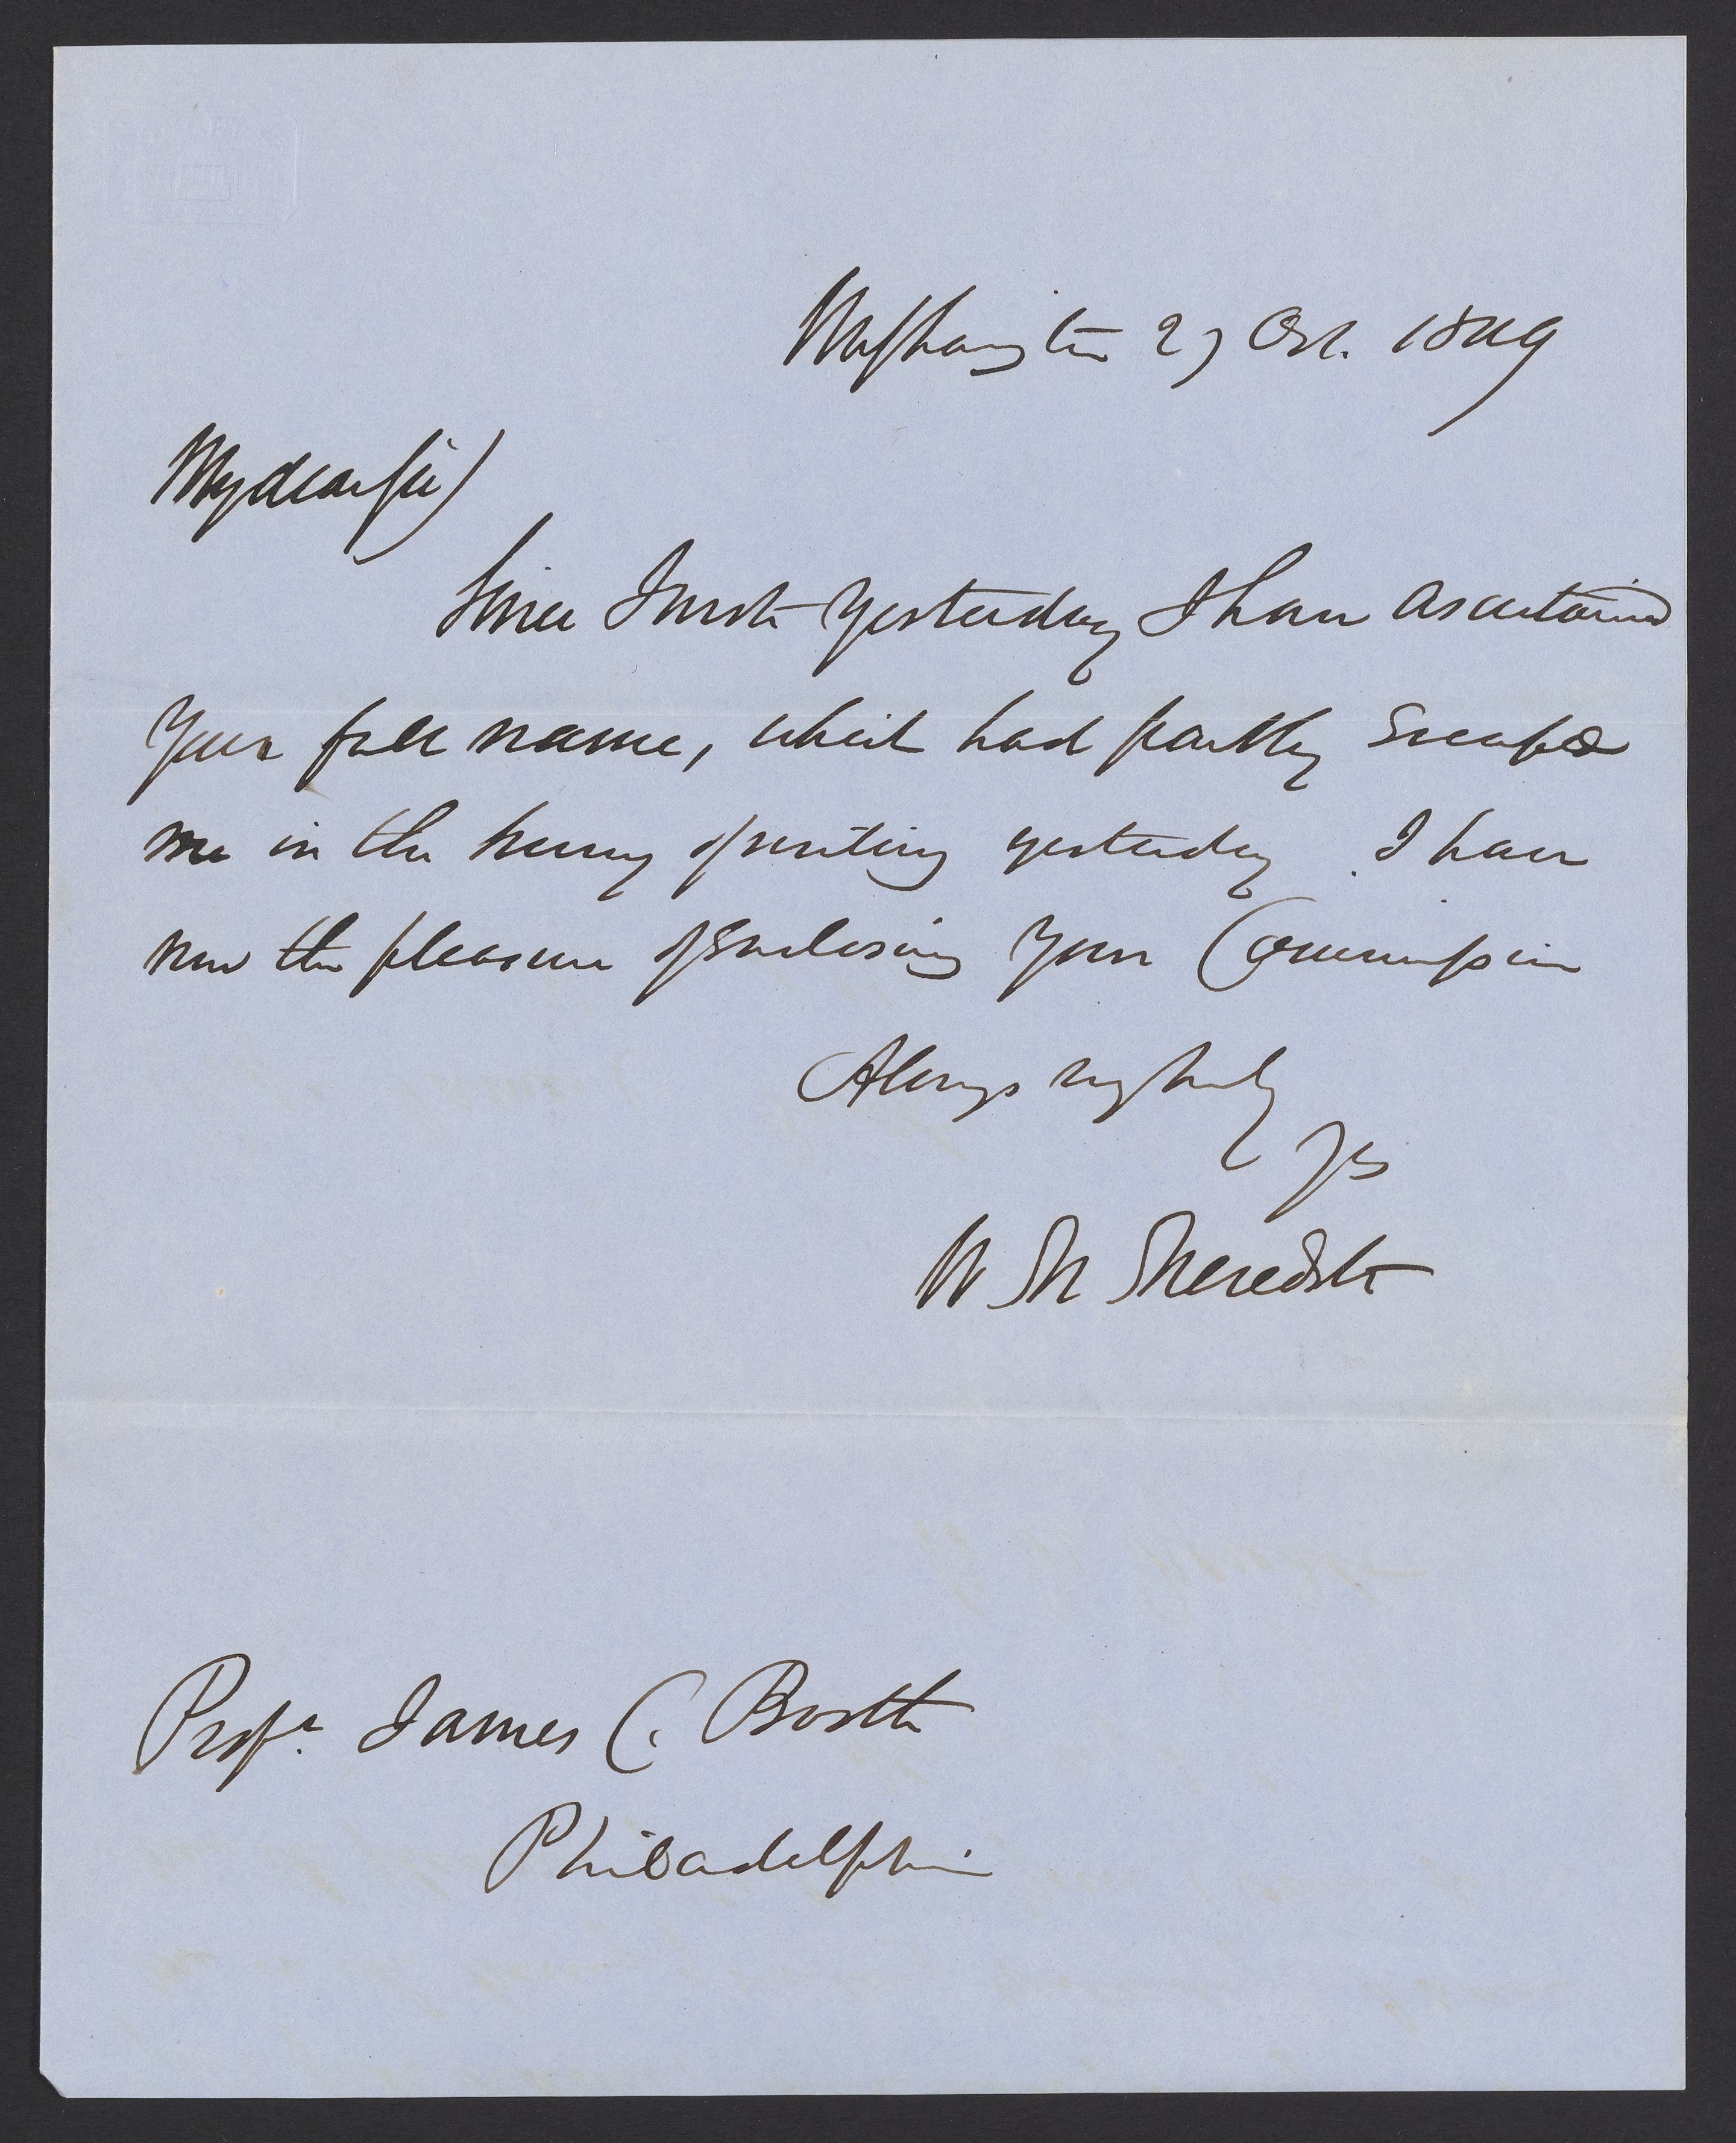 Washington 27 Oct. 1849
My dear Sir)
Since I wrote yesterday I have ascertained
your full name, which had partly escaped
me in the hurry of writing yesterday. I have
now the pleasure of enclosing your Commission
Always very truly
Yrs
W M Meredith
Profr. James C. Booth
Philadelphia